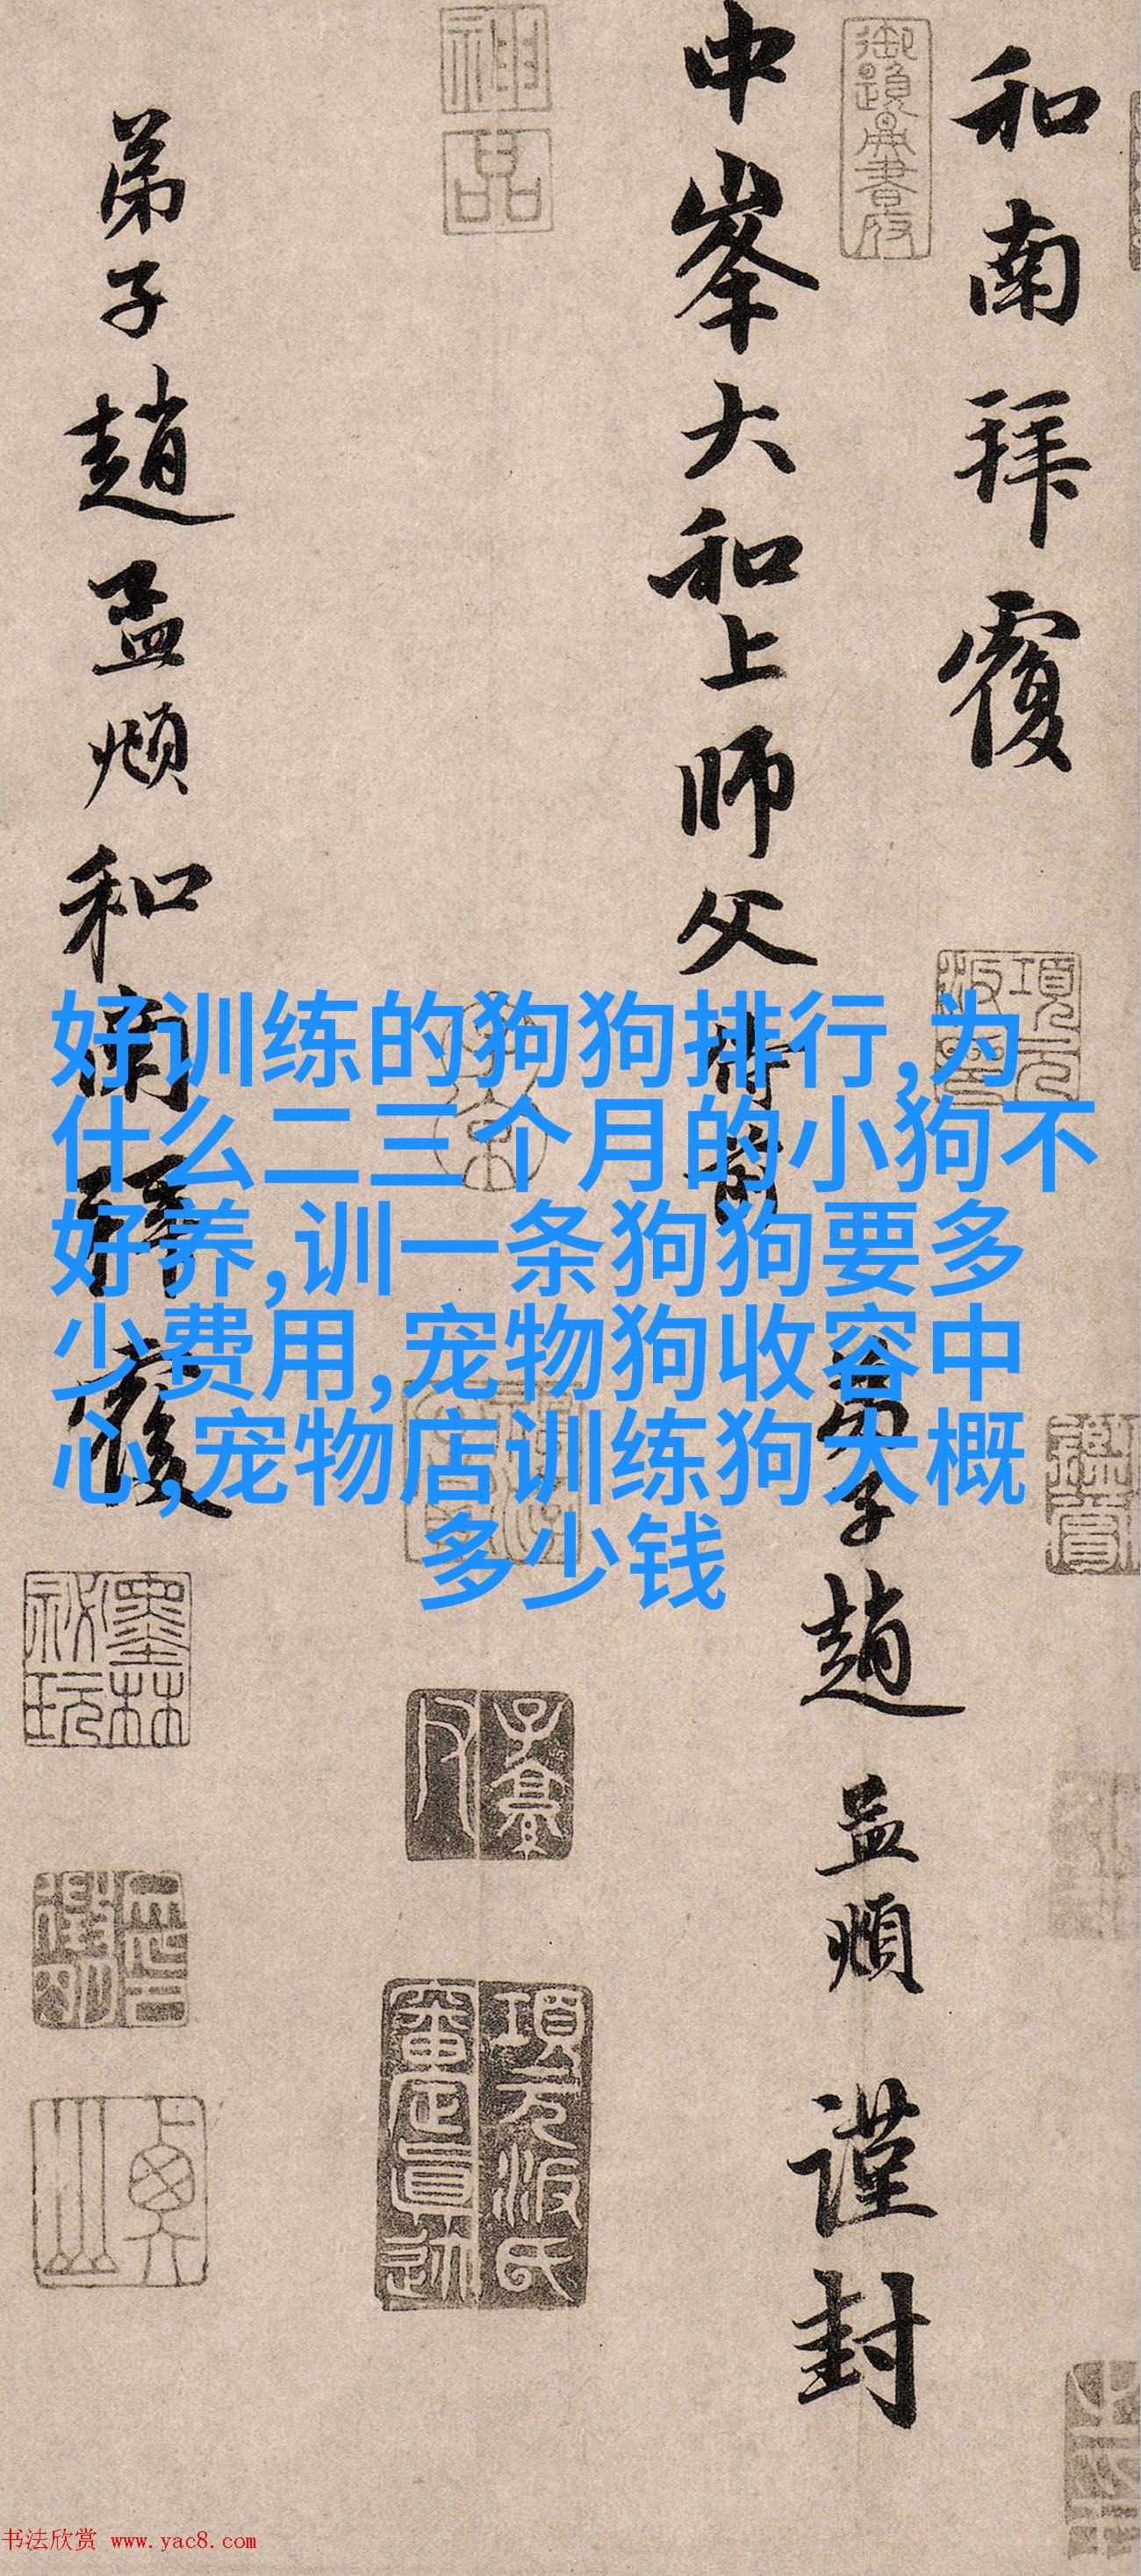 和南拜覆
中峯大和上师父 侍者 弟子趙孟頫 謹封
弟子趙孟頫和南拜覆
御題畫書府
神品
項元汴印
子京
墨林祕玩
項元汴氏審定真跡
好训练的狗狗排行,为
什么二三个月的小狗不
好养,训一条狗狗要多
少费用,宠物狗收容中
心,宠物店训练狗大概
多少钱
书法欣赏 www.yac8.com